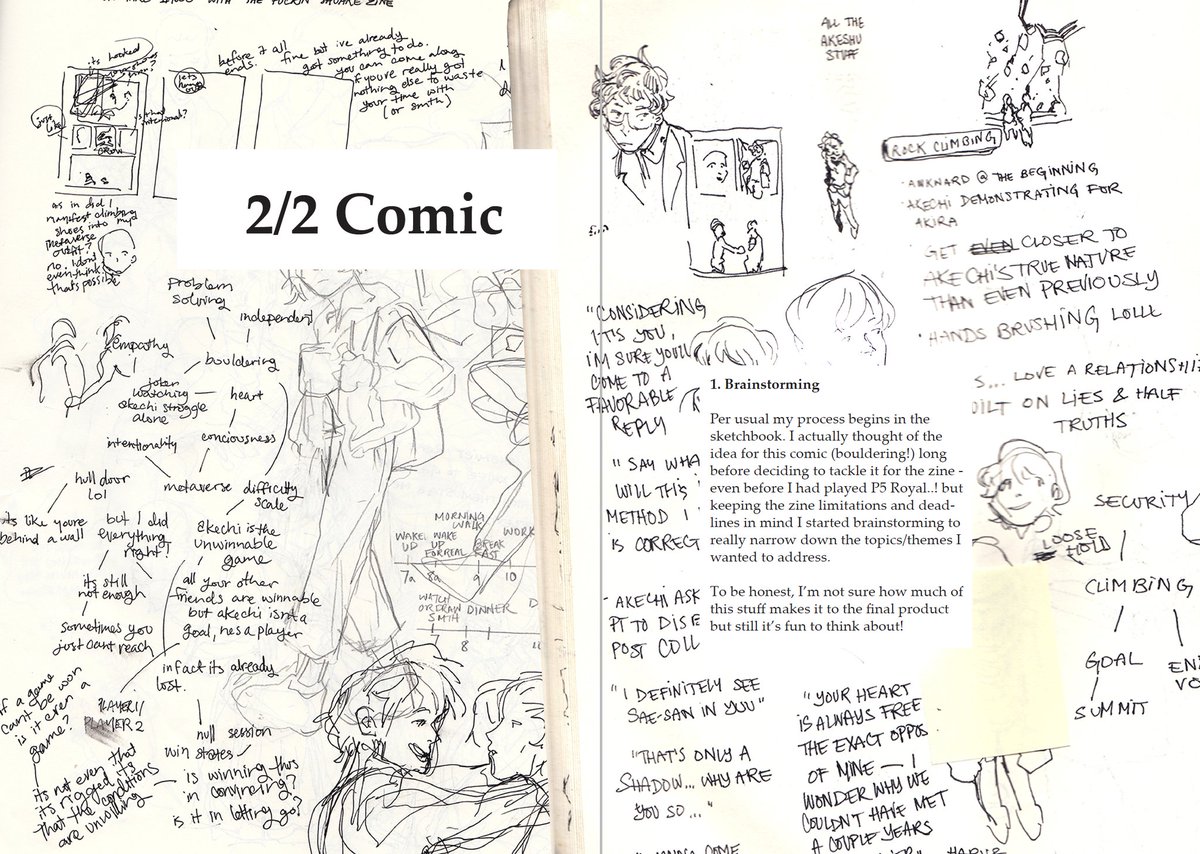 WITH THE FUCKIN SQUARE ZINE
its hooked
before it all
ends.
fine but ive already
got something to do.
you can come along
if youre really got
nothing else to waste
your time with
(or smth)
lets
hang
out
just
like
intentional?
GROW
as in did I
manifest climbing
shoes into my
metaverse
outfit?
no I dont
even think
thats possible
2/2 Comic
problem
solving
independent
empathy
bouldering
joker
watching
akechi struggle
alone
heart
intentionality
conciousness
hull door
lol
metaverse
difficulty
scale
its like youre
behind a wall
but I did
everything
right!
akechi is the
unwinnable
game
its still
not enough
all your other
friends are winnable
but akechi isnt a
goal, hes a player
sometimes you
just cant reach
in fact its already
lost.
if a game
cant be won
is it even a
game?
PLAYER 1/
PLAYER 2
null session
win states
its not even that
its rigged its
that the conditions
are unwilling
is winning thus
in convincing?
is it in letting go?
MORNING
WALK
WAKE
UP
WAKE
UP
FORREAL
BREAK
FAST
WORK
7a
8a
9
10
WATCH
OR DRAW
SMTH
DINNER
D
7
8
ALL THE
AKESHU
STUFF
ROCK CLIMBING
· AWKWARD @ THE BEGINNING
· AKECHI DEMONSTRATING FOR
AKIRA
· GET EVEN CLOSER TO
AKECHI'S TRUE NATURE
THAN EVEN PREVIOUSLY
· HANDS BRUSHING LOLL
S... LOVE A RELATIONSHI
UILT ON LIES & HALF
TRUTHS
"CONSIDERING
IT'S YOU,
I'M SURE YOU'LL
COME TO A
FAVORABLE
REPLY
"SAY WHA
WILL THIS
METHOD I
IS CORRECT
- AKECHI ASK
PT TO DISE
POST COLL
1. Brainstorming
Per usual my process begins in the
sketchbook. I actually thought of the
idea for this comic (bouldering!) long
before deciding to tackle it for the zine -
even before I had played P5 Royal..! but
keeping the zine limitations and dead-
lines in mind I started brainstorming to
really narrow down the topics/themes I
wanted to address.
To be honest, I'm not sure how much of
this stuff makes it to the final product
but still it's fun to think about!
SECURITY
LOOSE
HOLD
CLIMBING
GOAL
SUMMIT
EN
VO
"I DEFINITELY SEE
SAE-SAN IN YOU"
"THAT'S ONLY A
SHADOW... WHY ARE
YOU SO..."
"YOUR HEART
IS ALWAYS FREE
THE EXACT OPPOS
OF MINE — I
WONDER WHY WE
COULDN'T HAVE MET
A COUPLE YEARS
COME